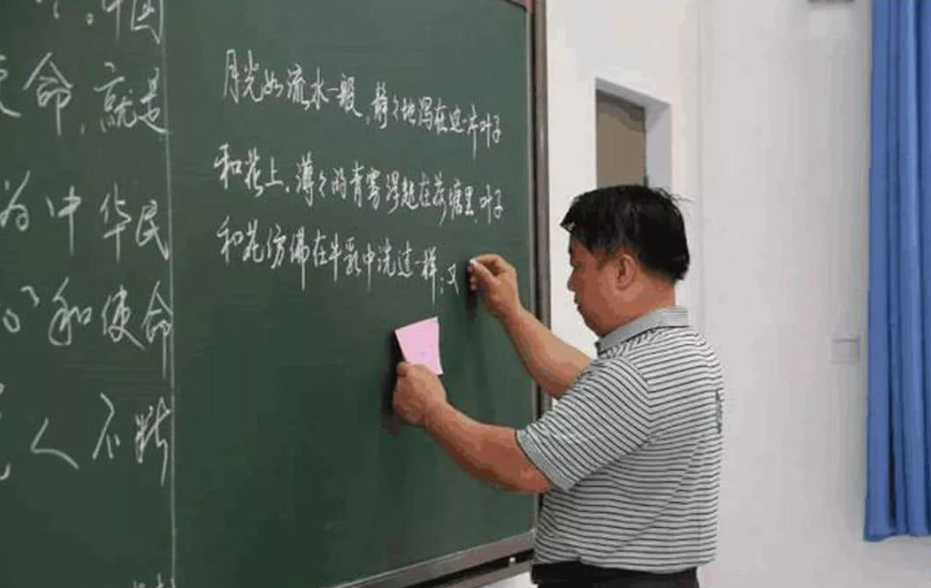 中国
使命,就是
为中华民
心和使命
人不断
月光如流水一般,静々地泻在这一片叶子
和花上。薄々的青雾浮起在荷塘里.叶子
和花仿佛在牛乳中洗过一样;又